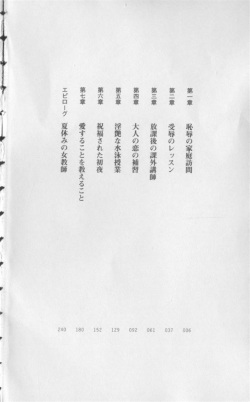 第一章 恥辱の家庭訪問 006
第二章 受辱のレッスン 037
第三章 放課後の課外講師 061
第四章 大人の恋の補習 092
第五章 淫艶な水泳授業 129
第六章 祝福された初夜 192
第七章 愛することを教えること 280
エピローグ 夏休みの女教師 293